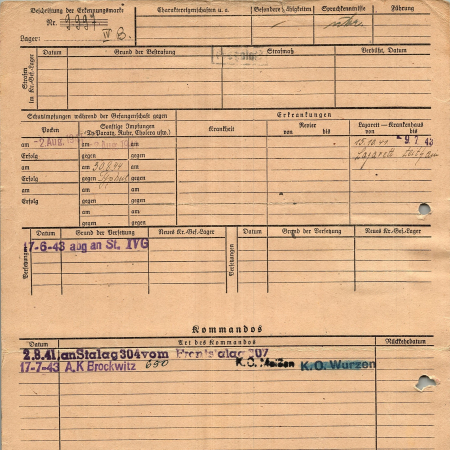 Beschriftung der Erkennungsmarke
Nr. 9997
Lager: IV B.
Charaktereigenschaften u. a.
Besondere Fähigkeiten
Sprachkenntnisse
Führung
Strafen im Kr.-Gef.-Lager
Datum
Grund der Bestrafung
Strafmaß
Verbüßt, Datum
Schutzimpfungen während der Gefangenschaft gegen
Erkrankungen
Pocken
Sonstige Impfungen
(Ty.Paraty. Ruhr, Cholera usw.)
Krankheit
Revier
von bis
Lazarett — Krankenhaus
von bis
am -2 Aug. 194
am
15.10.41 -9. 7. 43
Erfolg
gegen
Lazarett
am
am 30.9.41
Erfolg
gegen
am
am
Erfolg
gegen
am
gegen
am
gegen
Versetzungen
Datum
Grund der Versetzung
Neues Kr.-Gef.-Lager
Versetzungen
Datum
Grund der Versetzung
Neues Kr.-Gef.-Lager
17-6-43 abg an St. IVG
Kommandos
Datum
Art des Kommandos
Rückkehrdatum
2.8.41 an Stalag 304 vom Frontstalag 207
17-7-43 A.K Brockwitz 650 K.O. Meißen K.O. Wurzen